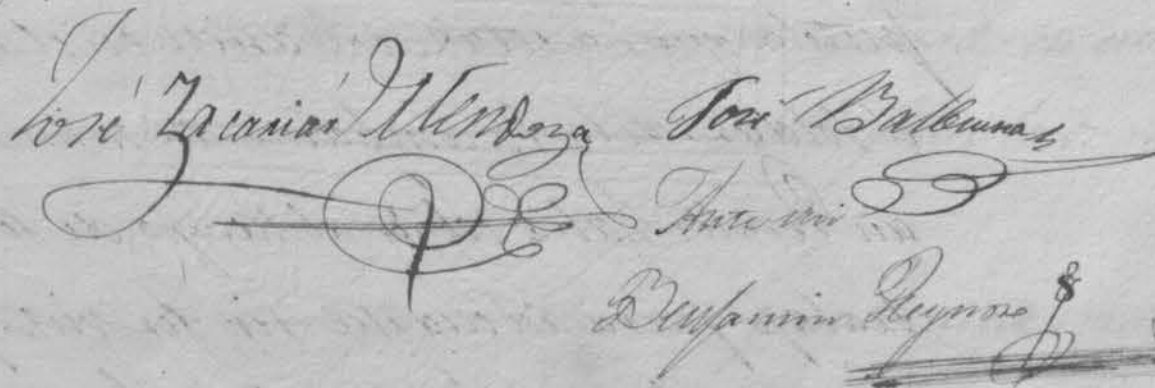 José Zacarias Mendoza José
Ante mi
Benjamin Reynoso